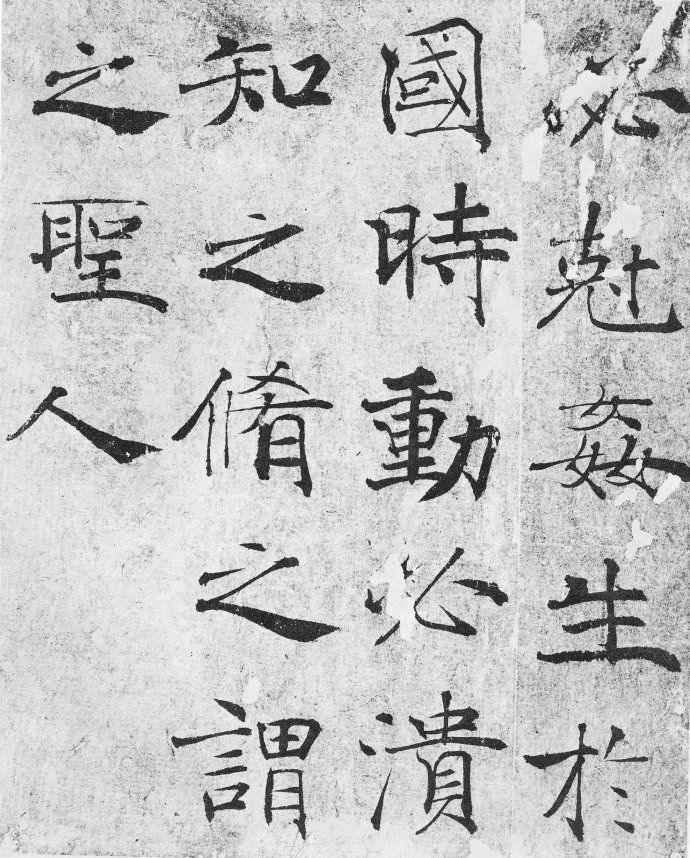 必剋姦生於
國時動必潰
知之脩之謂
之聖人